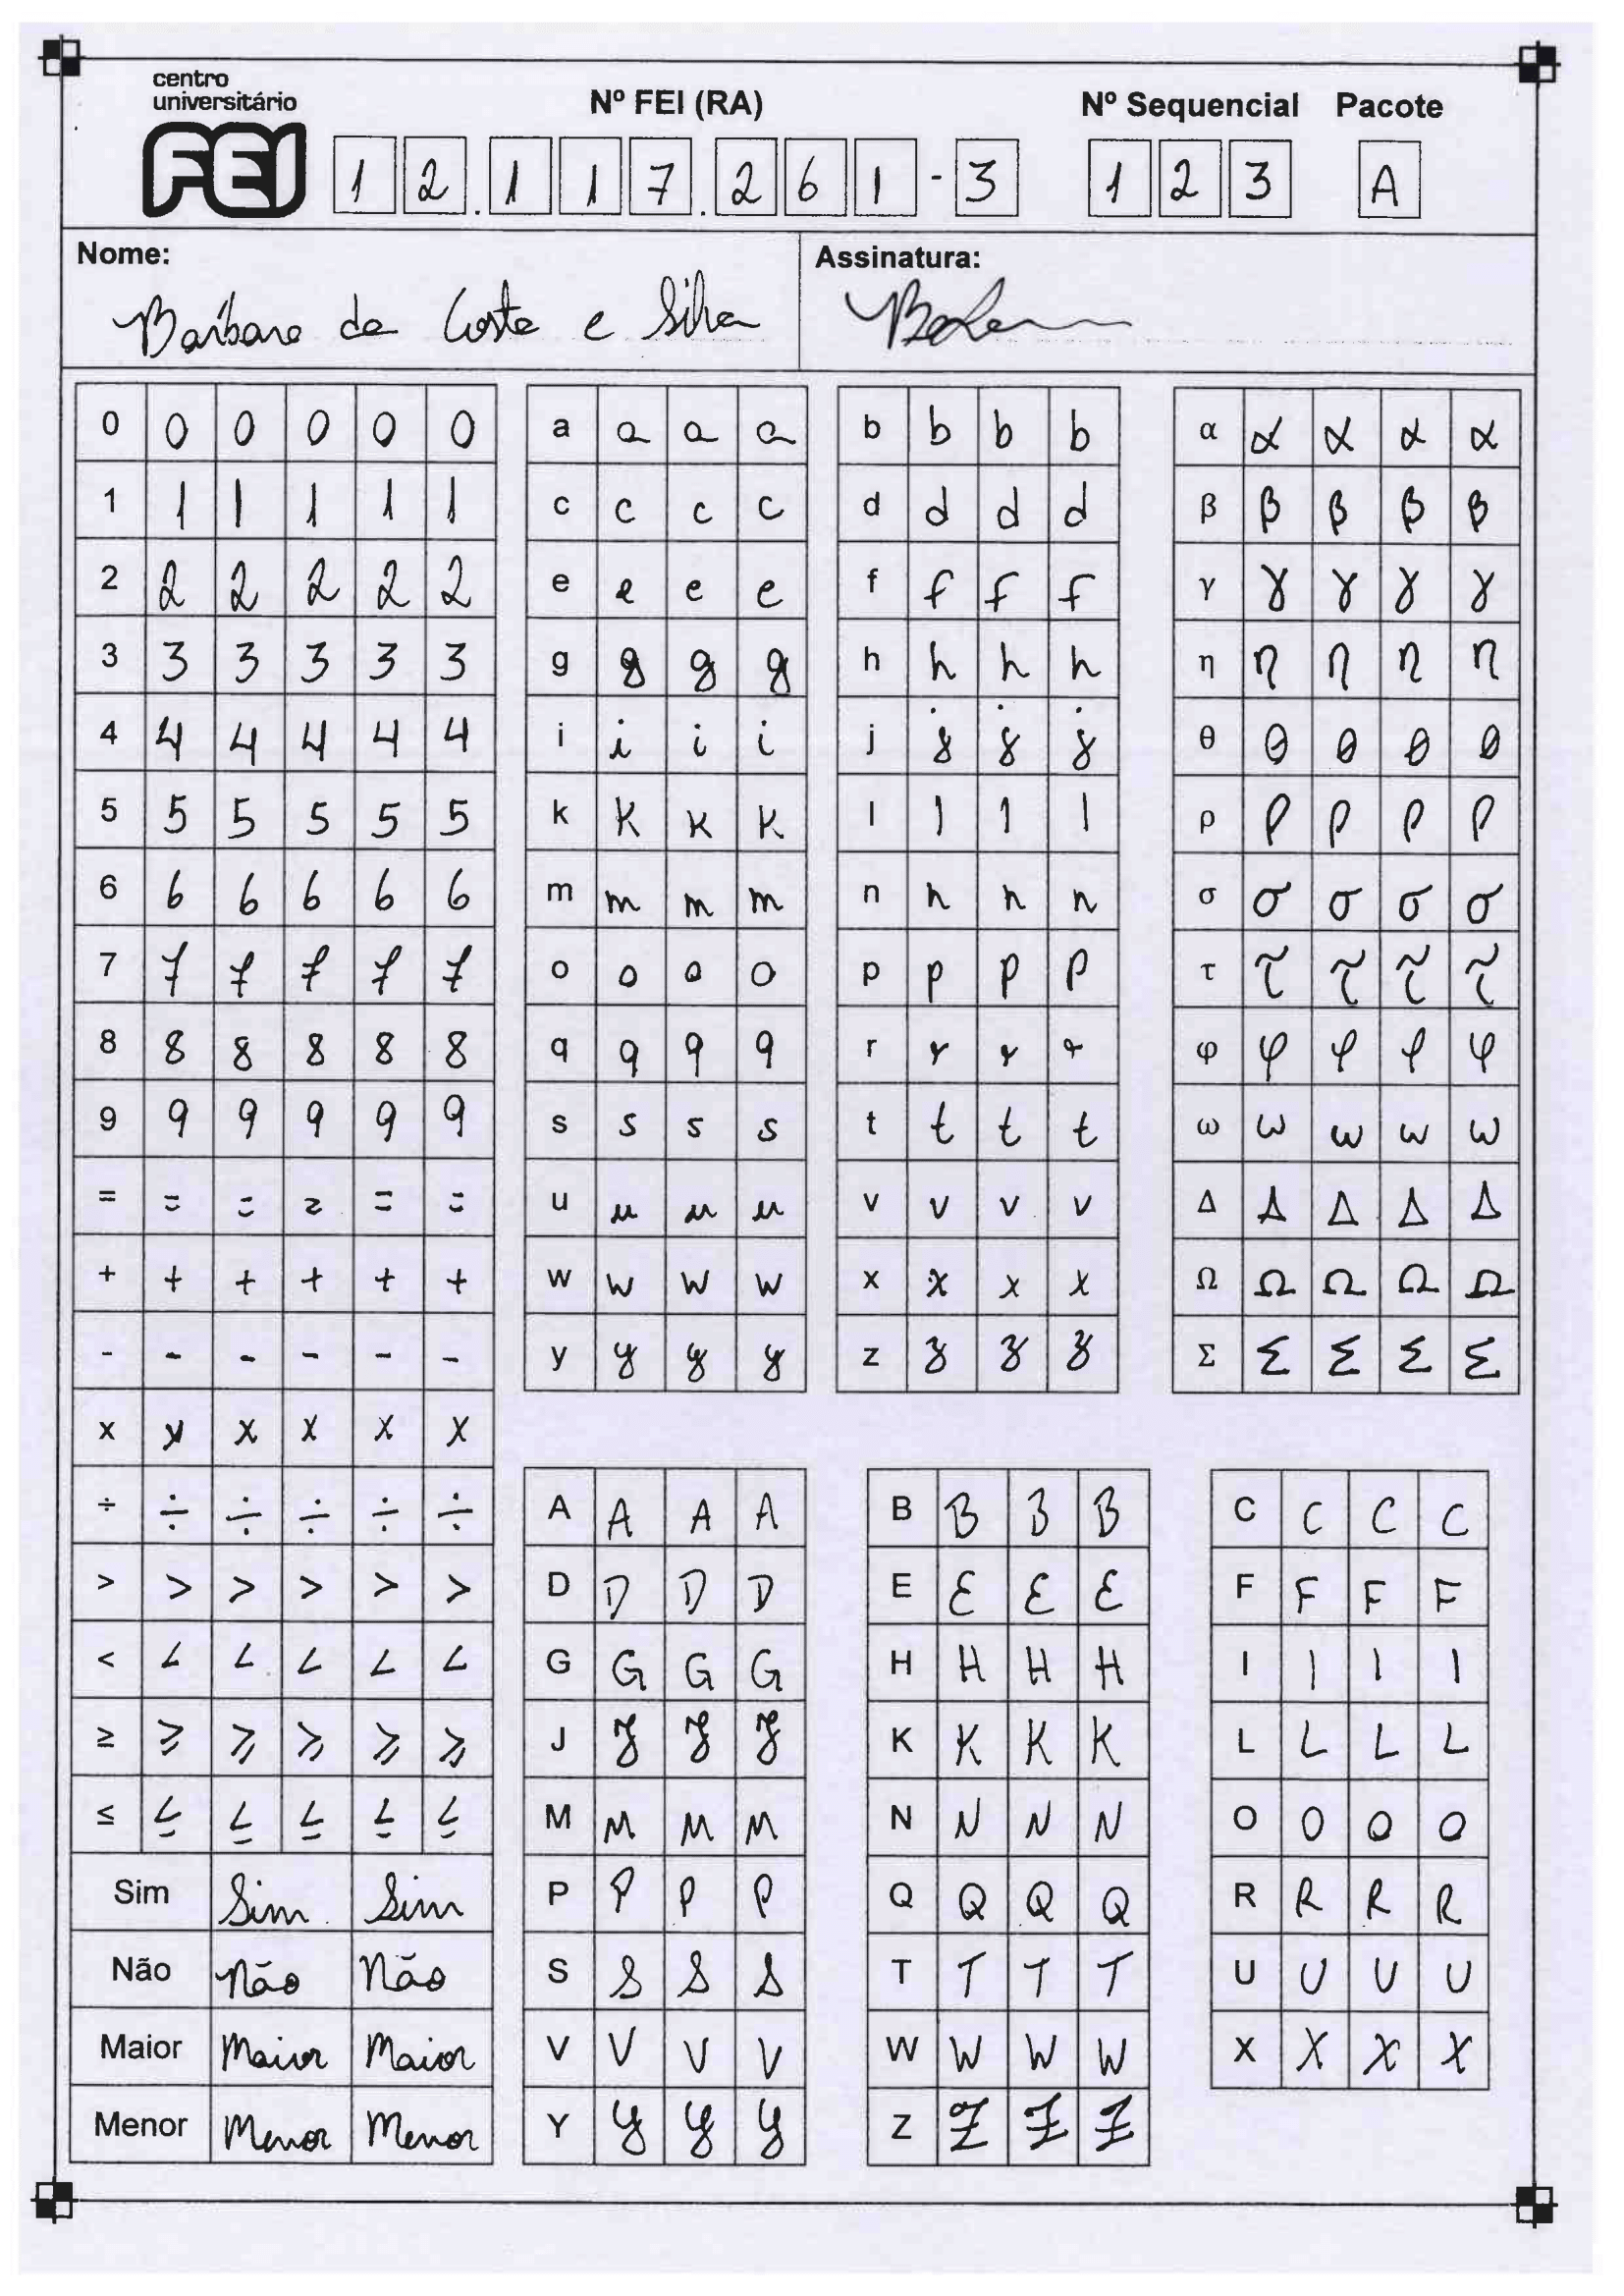 centro
universitário
FEI
Nº FEI (RA)
Nº Sequencial Pacote
1 2 . 1 1 7 . 2 6 1 - 3 1 2 3 A
Nome:
Assinatura:
Barbara da Costa e Silva
0 0 0 0 0 0
1 1 1 1 1 1
2 2 2 2 2 2
3 3 3 3 3 3
4 4 4 4 4 4
5 5 5 5 5 5
6 6 6 6 6 6
7 7 7 7 7 7
8 8 8 8 8 8
9 9 9 9 9 9
= = = = = =
+ + + + + +
- - - - - -
x x x x x x
÷ ÷ ÷ ÷ ÷ ÷
> > > > > >
< < < < < <
≥ ≥ ≥ ≥ ≥ ≥
≤ ≤ ≤ ≤ ≤ ≤
Sim Sim Sim
Não Não Não
Maior Maior Maior
Menor Menor Menor
a a a a
c c c c
e e e e
g g g g
i i i i
k k k k
m m m m
o o o o
q q q q
s s s s
u u u u
w w w w
y y y y
b b b b
d d d d
f f f f
h h h h
j j j j
l l l l
n n n n
p p p p
r r r r
t t t t
v v v v
x x x x
z z z z
α α α α α
β β β β β
γ γ γ γ γ
η η η η η
θ θ θ θ θ
ρ ρ ρ ρ ρ
σ σ σ σ σ
τ τ τ τ τ
φ φ φ φ φ
ω ω ω ω ω
Δ Δ Δ Δ Δ
Ω Ω Ω Ω Ω
Σ Σ Σ Σ Σ
A A A A
D D D D
G G G G
J J J J
M M M M
P P P P
S S S S
V V V V
Y Y Y Y
B B B B
E E E E
H H H H
K K K K
N N N N
Q Q Q Q
T T T T
W W W W
Z Z Z Z
C C C C
F F F F
I I I I
L L L L
O O O O
R R R R
U U U U
X X X X